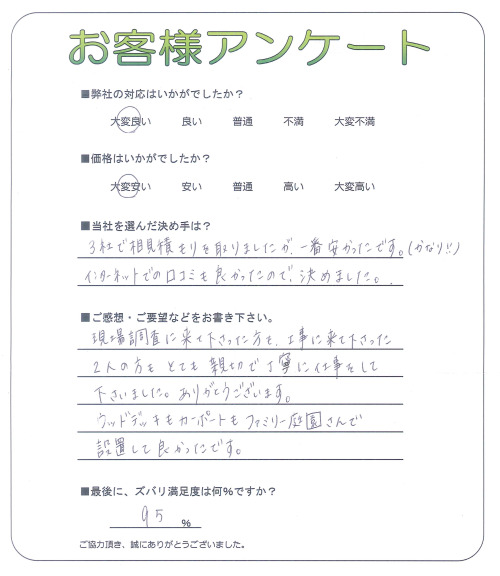 お客様アンケート
■弊社の対応はいかがでしたか？
大変良い 良い 普通 不満 大変不満
■価格はいかがでしたか？
大変安い 安い 普通 高い 大変高い
■当社を選んだ決め手は？
3社で相見積もりを取りましたが、一番安かったです。(かなり!!)
インターネットでの口コミも良かったので、決めました。
■ご感想・ご要望などをお書き下さい。
現場調査に来て下さった方も、工事に来て下さった
2人の方もとても親切で丁寧に仕事をして
下さいました。ありがとうございます。
ウッドデッキもカーポートもファミリー庭園さんで
設置して良かったです。
■最後に、ズバリ満足度は何%ですか？
95 %
ご協力頂き、誠にありがとうございました。